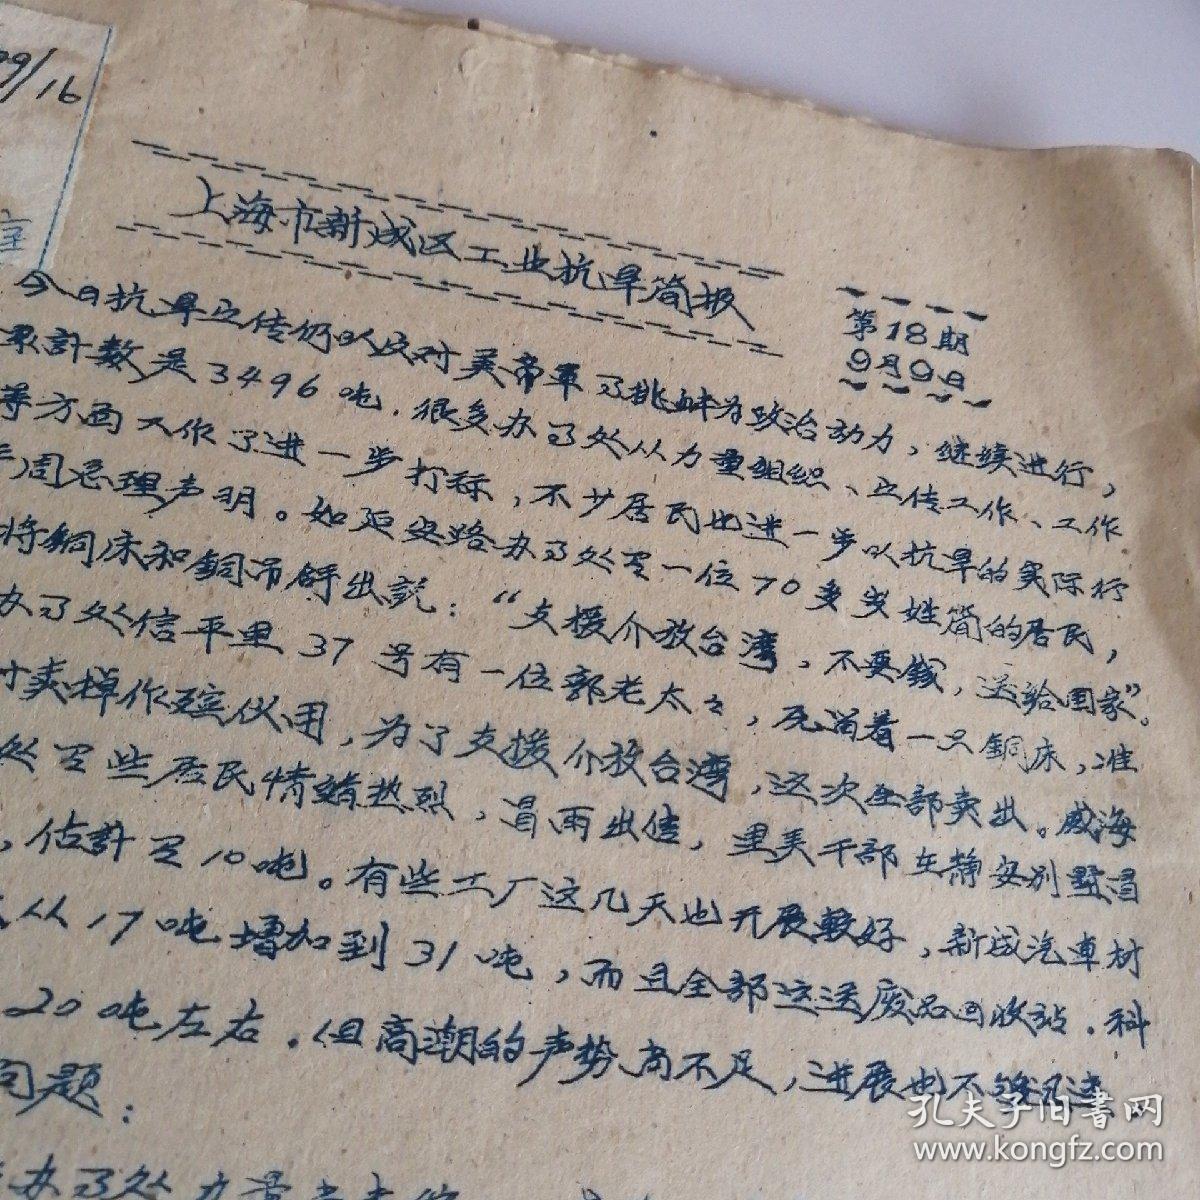 99/16
上海市新成区工业抗旱简报
第18期
9月9日
今日抗旱宣传仍以反对美帝军事挑衅为政治动力，继续进行，
累計数是3496吨．很多办事处从力量组织、宣传工作、工作
等方面又作了进一步打称，不少居民也进一步以抗旱的实际行
周总理声明。如延安路办事处里一位70多岁姓简的居民，
将銅床和銅吊觧出説：“支援介放台湾，不要錢，送給国家”。
办事处信平里37号有一位郭老太太，死留着一只銅床，准
卖掉作殡仪用，为了支援介放台湾，这次全部卖出。威海
处里些居民情緒热烈，冒雨出售，里委干部在静安别墅冒
，估計里10吨。有些工厂这几天也开展較好，新成汽車材
从17吨增加到31吨，而且全部运送废品回收站．科
20吨左右．但高潮的声势尚不足，进展也不够迅速．
问题：
办事处力量
孔夫子旧书网
www.kongfz.com